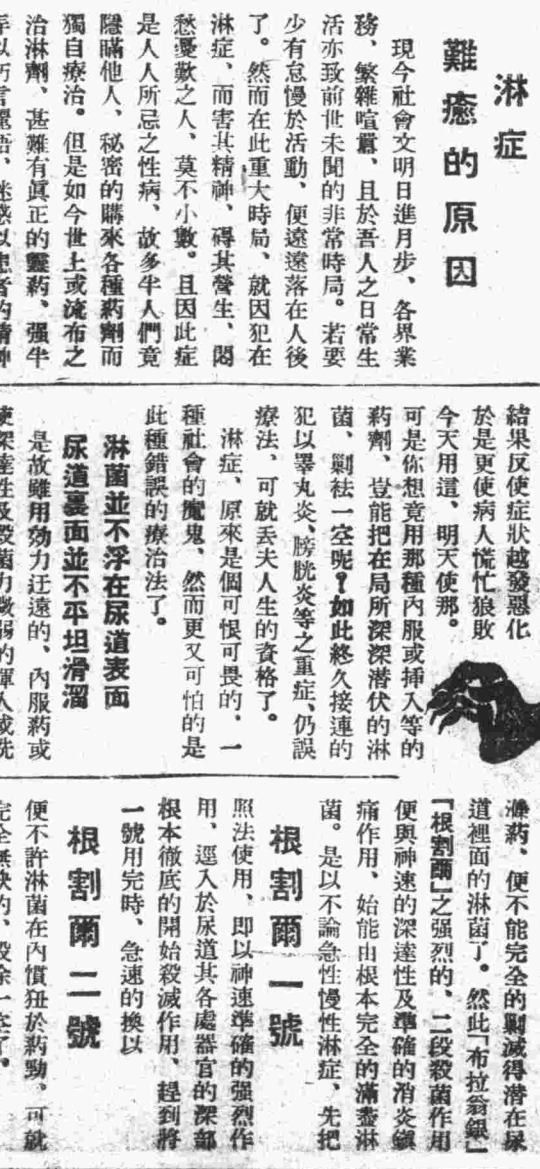 淋症
難癒的原因
現今社會文明日進月步、各界業
務、繁雜喧囂、且於吾人之日常生
活亦致前世未聞的非常時局。若要
少有怠慢於活動、便遠遠落在人後
了。然而在此重大時局、就因犯在
淋症、而害其精神、碍其營生、悶
愁憂歎之人、莫不小數。且因此症
是人人所忌之性病、故多半人們竟
隱瞞他人、秘密的購來各種葯劑而
獨自療治。但是如今世上或流布之
治淋劑、甚難有眞正的靈葯、强半
結果反使症狀越發惡化
於是更使病人慌忙狼敗
今天用這、明天使那。
可是你想竟用那種內服或挿入等的
葯劑、豈能把在局所深深潜伏的淋
菌、剿袪一空呢？如此終久接連的
犯以睪丸炎、膀胱炎等之重症、仍誤
療法、可就丢夫人生的資格了。
淋症、原來是個可恨可畏的、一
種社會的魔鬼、然而更又可怕的是
此種錯誤的療治法了。
淋菌並不浮在尿道表面
尿道裏面並不平坦滑溜
是故雖用効力迂遠的、內服葯或
葯、便不能完全的剿滅得潜在尿
道裡面的淋菌了。然此「布拉翁銀」
「根割爾」之强烈的、二段殺菌作用
便與神速的深達性及準確的消炎鎭
痛作用、始能由根本完全的滿盡淋
菌。是以不論急性慢性淋症、先把
根割爾一號
照法使用、即以神速準確的强烈作
用、逕入於尿道其各處器官的深部
根本徹底的開始殺滅作用、趕到將
一號用完時、急速的換以
根割爾二號
便不許淋菌在內慣狃於葯勁、可就